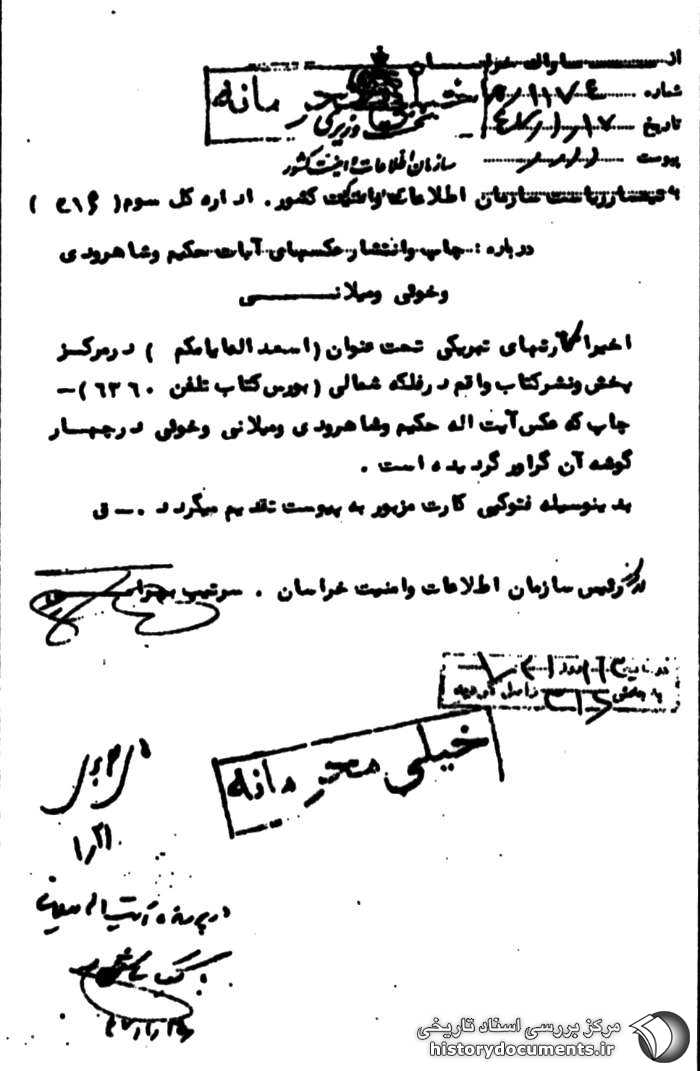 از ساواک خراسان
خیلی محرمانه
شماره
نخست وزیری
تاریخ
سازمان اطلاعات و امنیت کشور
پیوست
به تیمسار ریاست سازمان اطلاعات و امنیت کشور . اداره کل سوم ( ۳۱۶ )
درباره : چاپ وانتشار عکسهای آیات حکیم وشاهرودی
وخوئی ومیلانــــــی
اخیرا کارتهای تبریکی تحت عنوان (اسعد الله ایامکم ) درمرکز
پخش ونشر کتاب واقع درفلکه شمالی (بورس کتاب تلفن ۶۳۶۰)ــ
چاپ که عکس آیت اله حکیم وشاهرودی ومیلانی وخوئی درچهار
گوشه آن گراور گردیده است .
بدینوسیله فتوکپی کارت مزبور به پیوست تقدیم میگردد .ــ ق
رئیس سازمان اطلاعات وامنیت خراسان . سرتیپ بهرامی
خیلی محرمانه
در پرونده آیت اله میلانی
مرکز بررسی اسناد تاریخی
historydocuments.ir